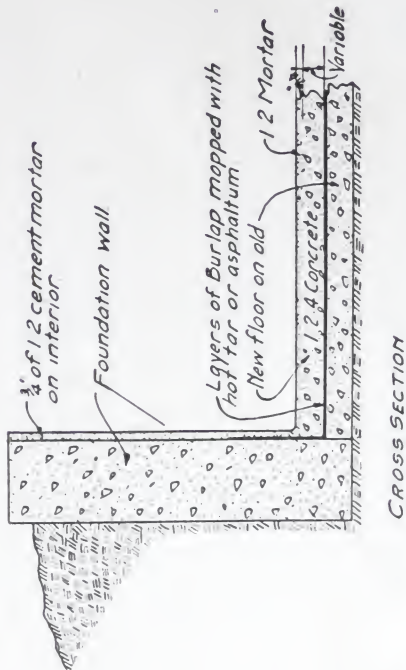 ¾" of 1 2 cement mortar
on interior
Foundation wall
Layers of Burlap mopped with
hot tar or asphaltum
New floor on old
1 2 Mortar
1. 2. 4 Concrete
Variable
CROSS SECTION